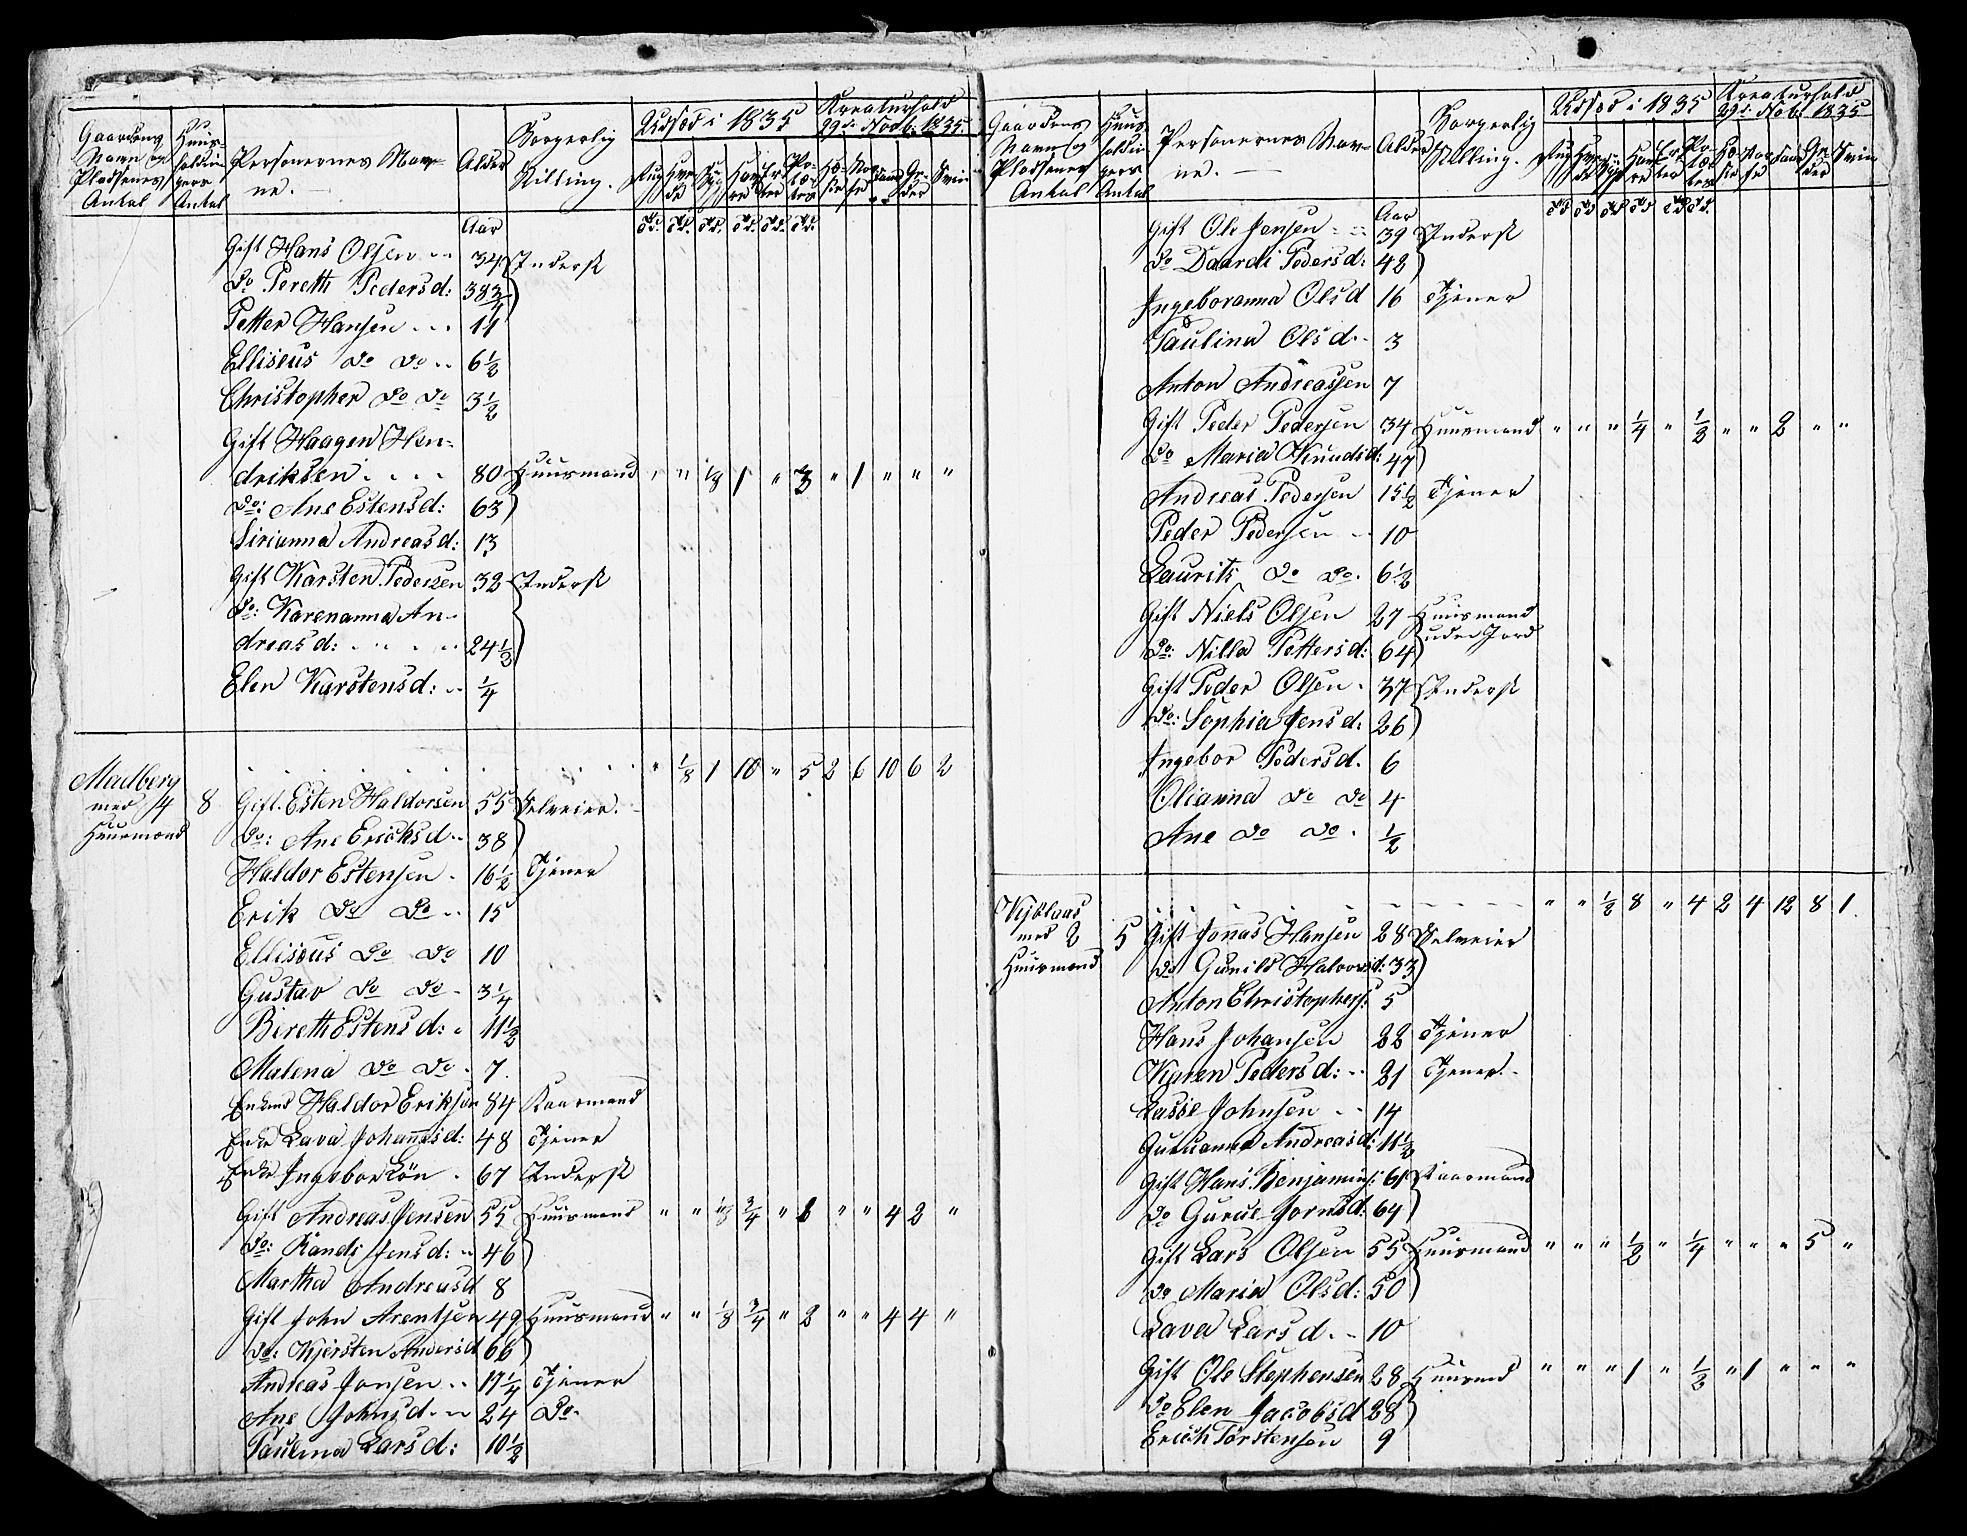 Gaardens Navn og Pladsenes Antal | Huus-holdningers Antal | Personernes Navne. | Alder | Borgerlig Stilling. | Udsæd i 1835 | Kreaturhold 29de Novbr. 1835.
Rug | Hvede | Byg | Havre | Erter | Potætes | Hæste | Nød | Faar | Geder | Sviin
Aar | Td. Td. Td. Td. Td. Td.
Gift Hans Olsen 34 Inderst
Do Pereth Pedersd: 38 3/4
Petter Hansen 11
Elliseus do do 6 1/2
Christopher do do 3 1/2
Gift Haagen Hen-
driksen 80 Huusmand " " 1/8 1 " 3 " 1 " " "
do: Ane Estensd: 63
Sirianna Andreasd: 13
Gift Karsten Pedersen 32 Inderst
Do: Karenanna An-
dreasd: 24 1/2
Elen Karstensd: 1/4
" 1/8 1 10 " 5 2 6 10 6 2
med 4 8 Gift Esten Haldorsen 55 Selveier
Huusmænd do: Ane Ericksd 38
Haldor Estensen 16 1/2 Tjener
Erik do do 15
Elliseus do do 10
Gustav do do 3 1/4
Bireth Estensd: 11 1/2
Malena do do 7
Enkmd Haldor Eriksen 84 Kaarmand
Enke Lava Johannisd: 48 Tjener
Enke Ingebor Lôn 67 Inderst
Gift Andreas Jensen 55 Huusmand " " 1/8 3/4 " " " 4 2 "
do: Randi Jensd: 46
Martha Andreasd 8
Gift John Arentsen 49 Huusmand " " 1/8 3/4 " 2 " " 4 4 "
do: Kjersten Andersd 66
Andreas Jonsen 17 1/4 Tjener
Ane Johnsd 24 Do
Paulina Larsd: 10 1/2
Gaardens Navn og Pladsenes Antal | Huus-holdningers Antal | Personernes Navne. | Alder | Borgerlig Stilling. | Udsæd i 1835 | Kreaturhold 29de Novb: 1835
Rug | Hvede | Byg | Havre | Erter | Potætes | Hæste | Nød | Faar | Geder | Sviin
Aar | Td Td Td Td Td Td.
Gift Ole Jensen 39 Inderst
do Daardi Pedersd: 42
Ingeboranna Olsd 16 Tjener
Paulina Olsd 3
Anton Andreassen 7
Gift Peder Pedersen 34 Huusmand " " " 1/4 " 1/2 " " 2 " "
Do Maria Knudsd: 47
Andreas Pedersen 15 1/2 Tjener
Peder Pedersen 10
Laurits do do 6 1/2
Gift Niels Olsen 27 Huusmand
do: Nilla Pettersd: 64 uden Jord
Gift Peder Olsen 37 Inderst
do: Sophia Jensd: 26
Ingebor Pedersd. 6
Olianna do do 4
Ane do do 1/2
" " 1/2 8 " 4 2 4 12 8 1
med 2 5 Gift Jonnas Hansen 28 Selveier
Huusmænd do Gunild Halvorsd: 33
Anton Christophers: 5
Hans Johansen 22 Tjener
Karen Pedersd: 21 Tjener
Lasse Johnsen 14
Andreasd: 11 1/2
Gift Hans Benjamins: 61 Kaarmand
do Gurue Jornsd: 64
Gift Lars Olsen 55 Huusmand " " " 1/2 " 1/4 " " " 5 "
do Maria Olsd: 50
Lava Larsd. 10
Gift Ole Stephensen 28 Huusmd " " " 1 " 1/2 " 1 " " "
Do Elen Jacobsd 28
Erich Torstensen 9